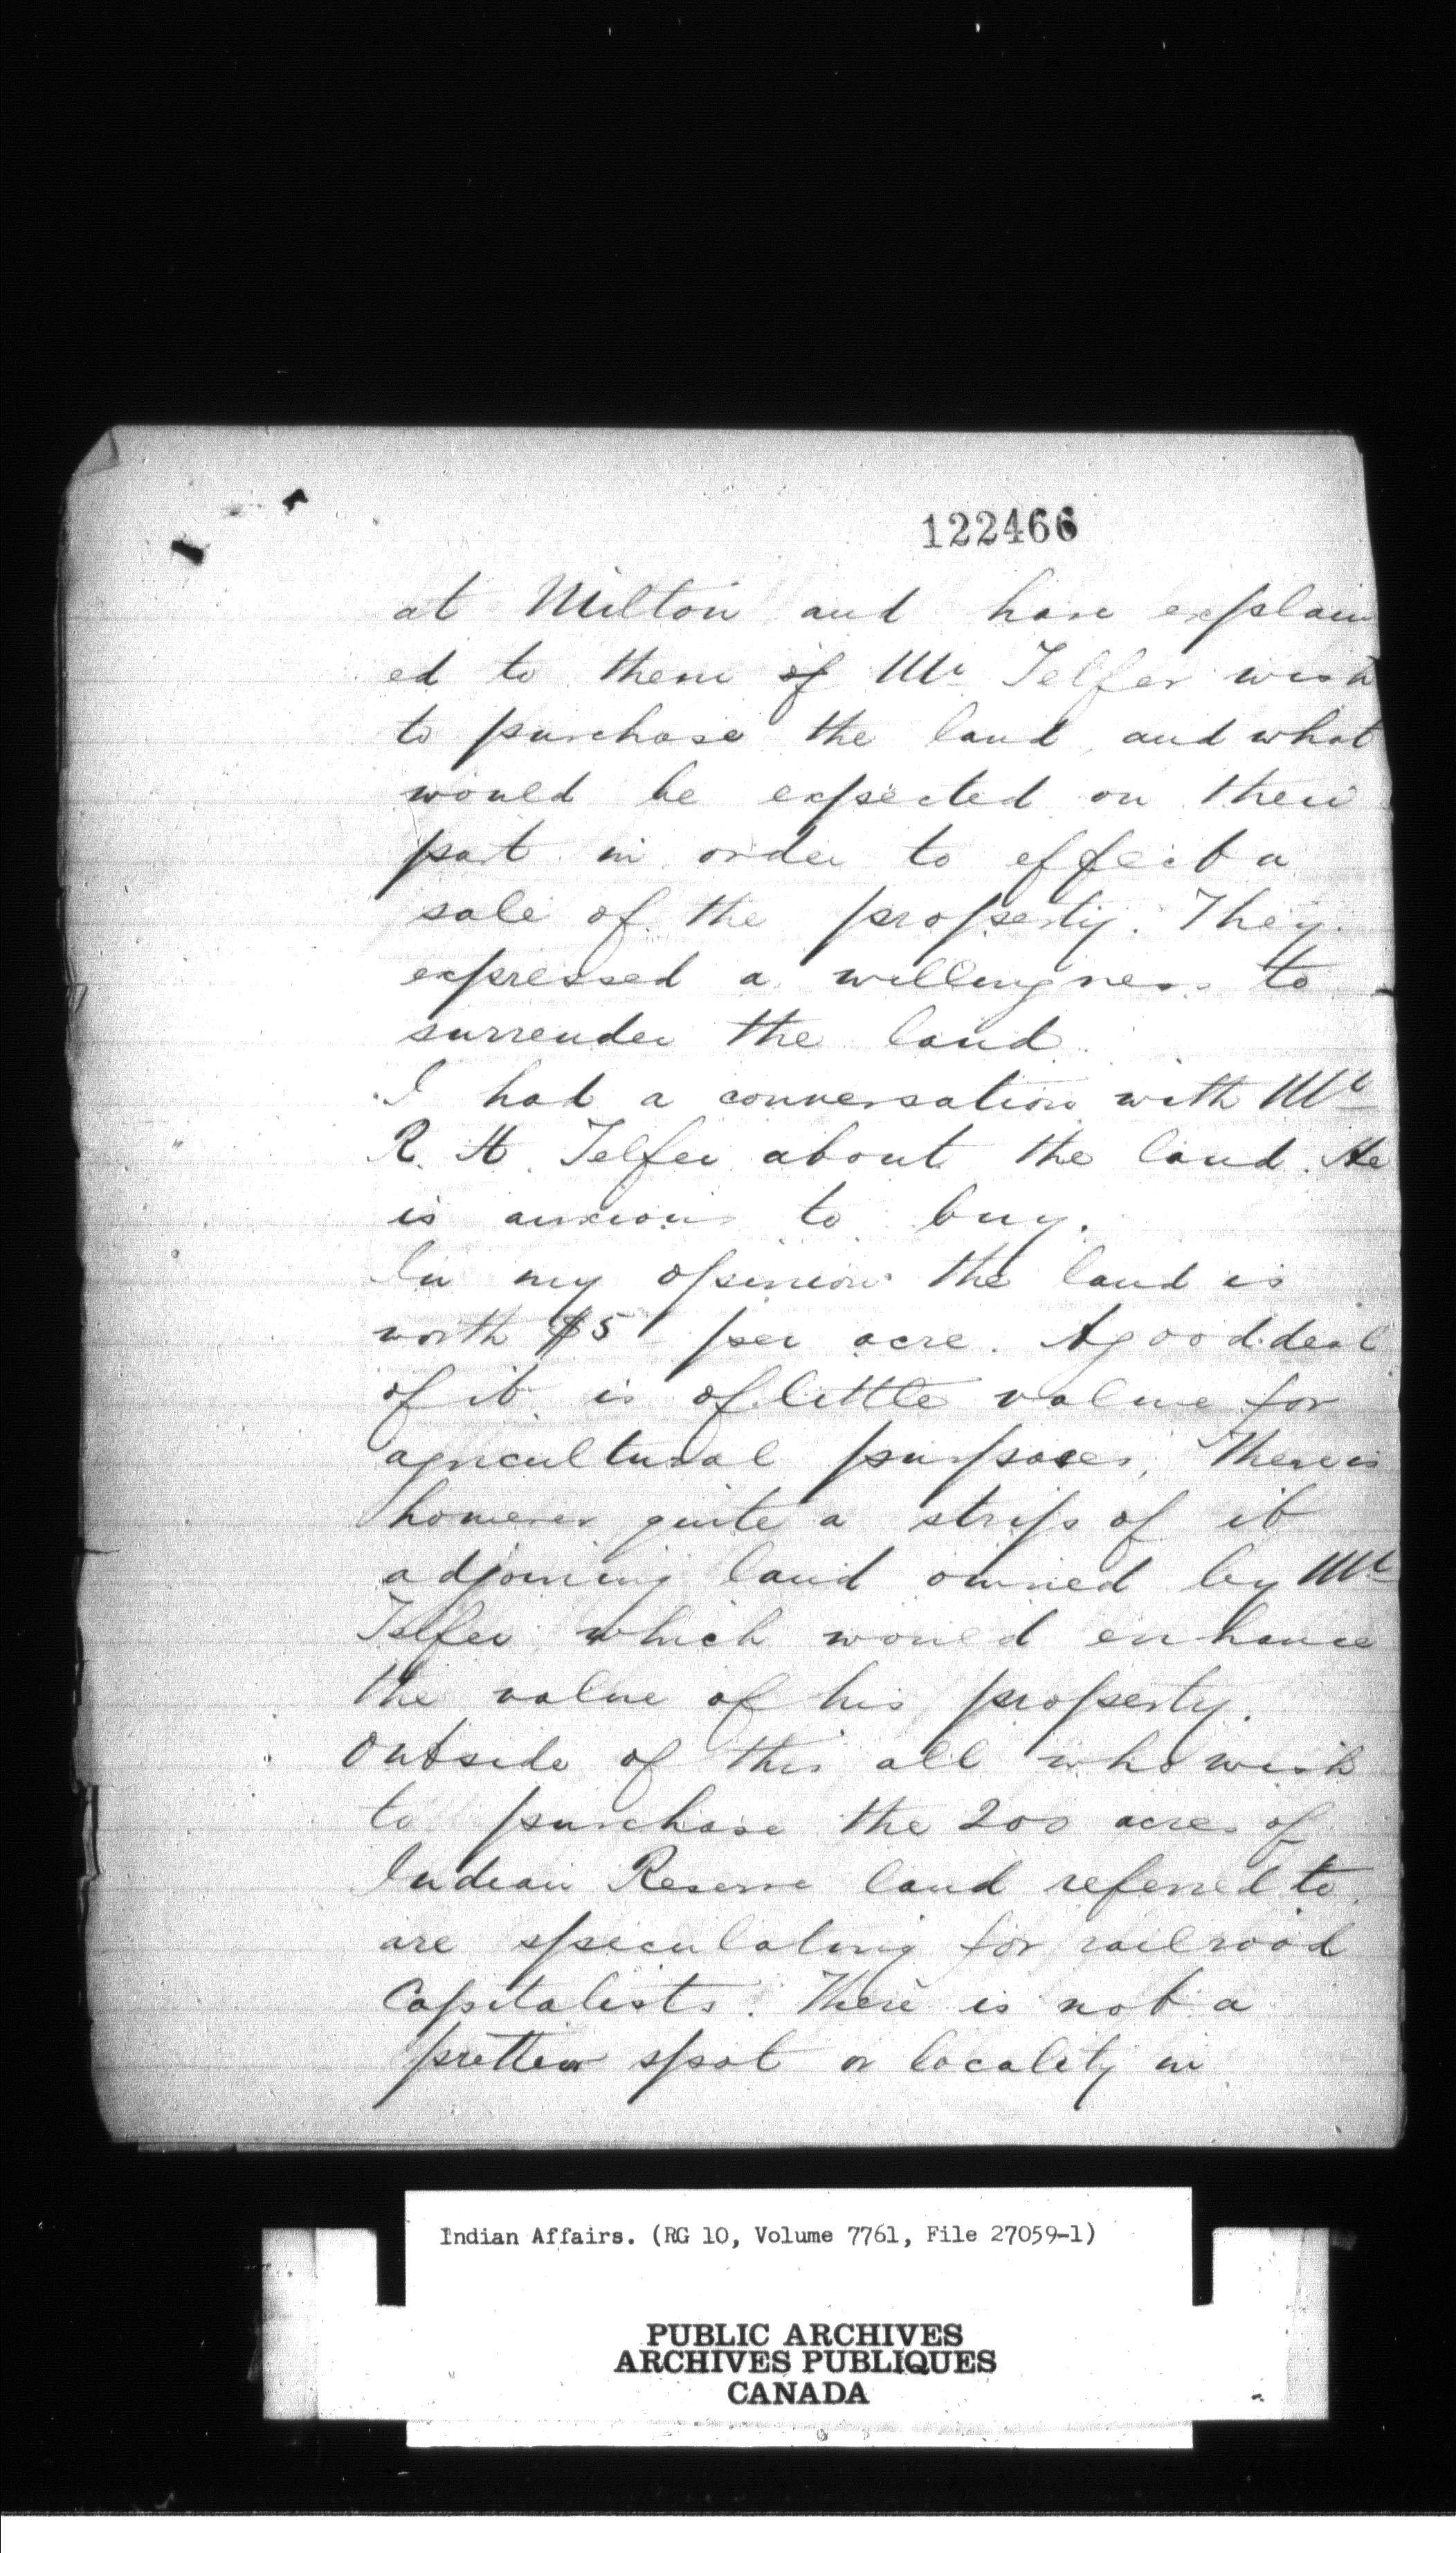 122466
at Milton and have explain
ed to them of Mr Telfer wish
to purchase the land, and what
would be expected on their
part in order to effect a
sale of the property. They
expressed a willingness to
surrender the land
I had a conversation with Mr
R. H. Telfer about the land. He
is anxious to buy.
In my opinion the land is
worth $5 per acre. A good deal
of it is of little value for
agricultural purposes, There is
however quite a strip of it
adjoining land owned by Mr
Telfer which would enhance
the value of his property.
Outside of this all who wish
to purchase the 200 acres of
Indian Reserve land referred to
are speculating for railroad
Capitalists. There is not a
prettier spot or locality in
Indian Affairs. (RG 10, Volume 7761, File 27059-1)
PUBLIC ARCHIVES
ARCHIVES PUBLIQUES
CANADA